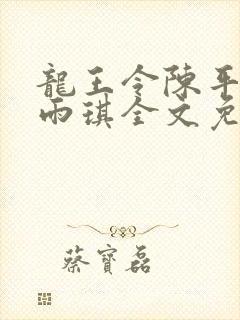 龍王令陳平
雨琪全文免
蔡寶磊